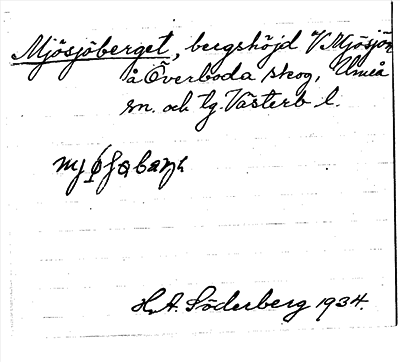 Mjösjöberget, bergshöjd V Mjösjön
å Överboda skog, Umeå
sn. och tg. Västerb l.
H. A. Söderberg 1934.